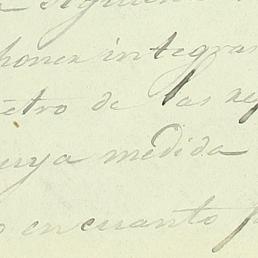 siguien
poner integras
etro de las re
cuya medida
o encuanto p